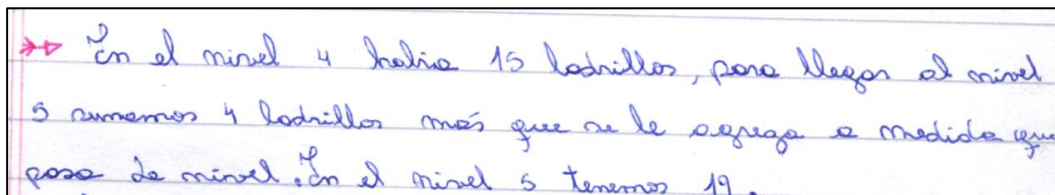 En el nivel 4 habia 15 ladrillos, para llegar al nivel
5 sumamos 4 ladrillos más que se le agrega a medida que
pasa de nivel. En el nivel 5 tenemos 19.